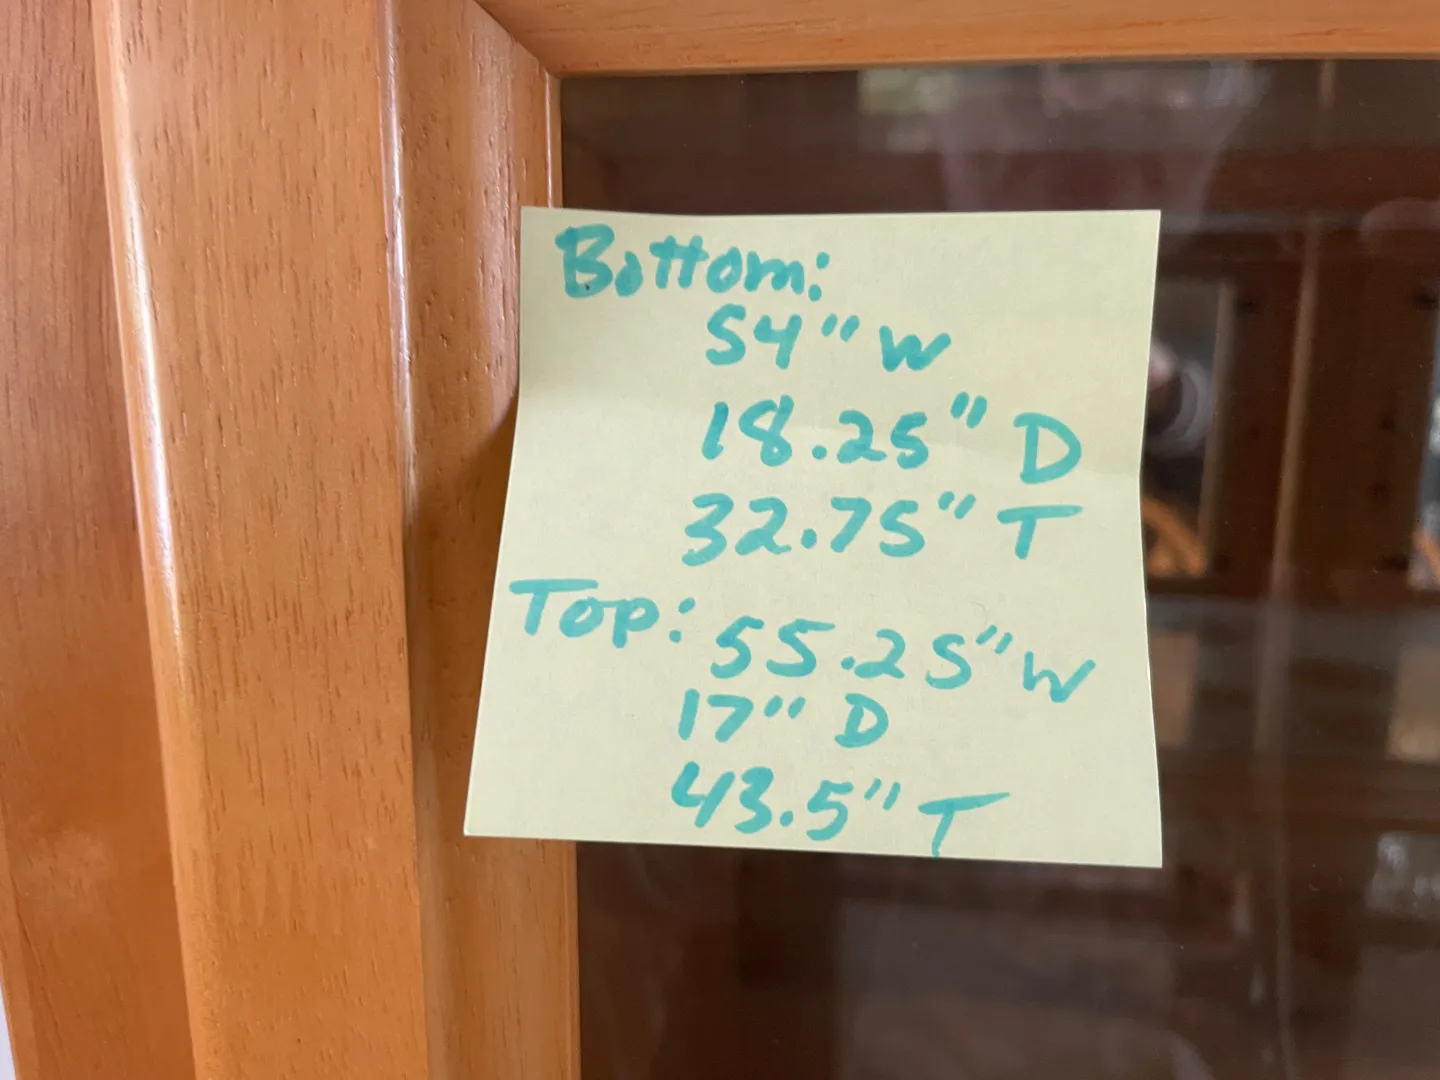 Bottom:
54" W
18.25" D
32.75" T
Top: 55.25" W
17" D
43.5" T